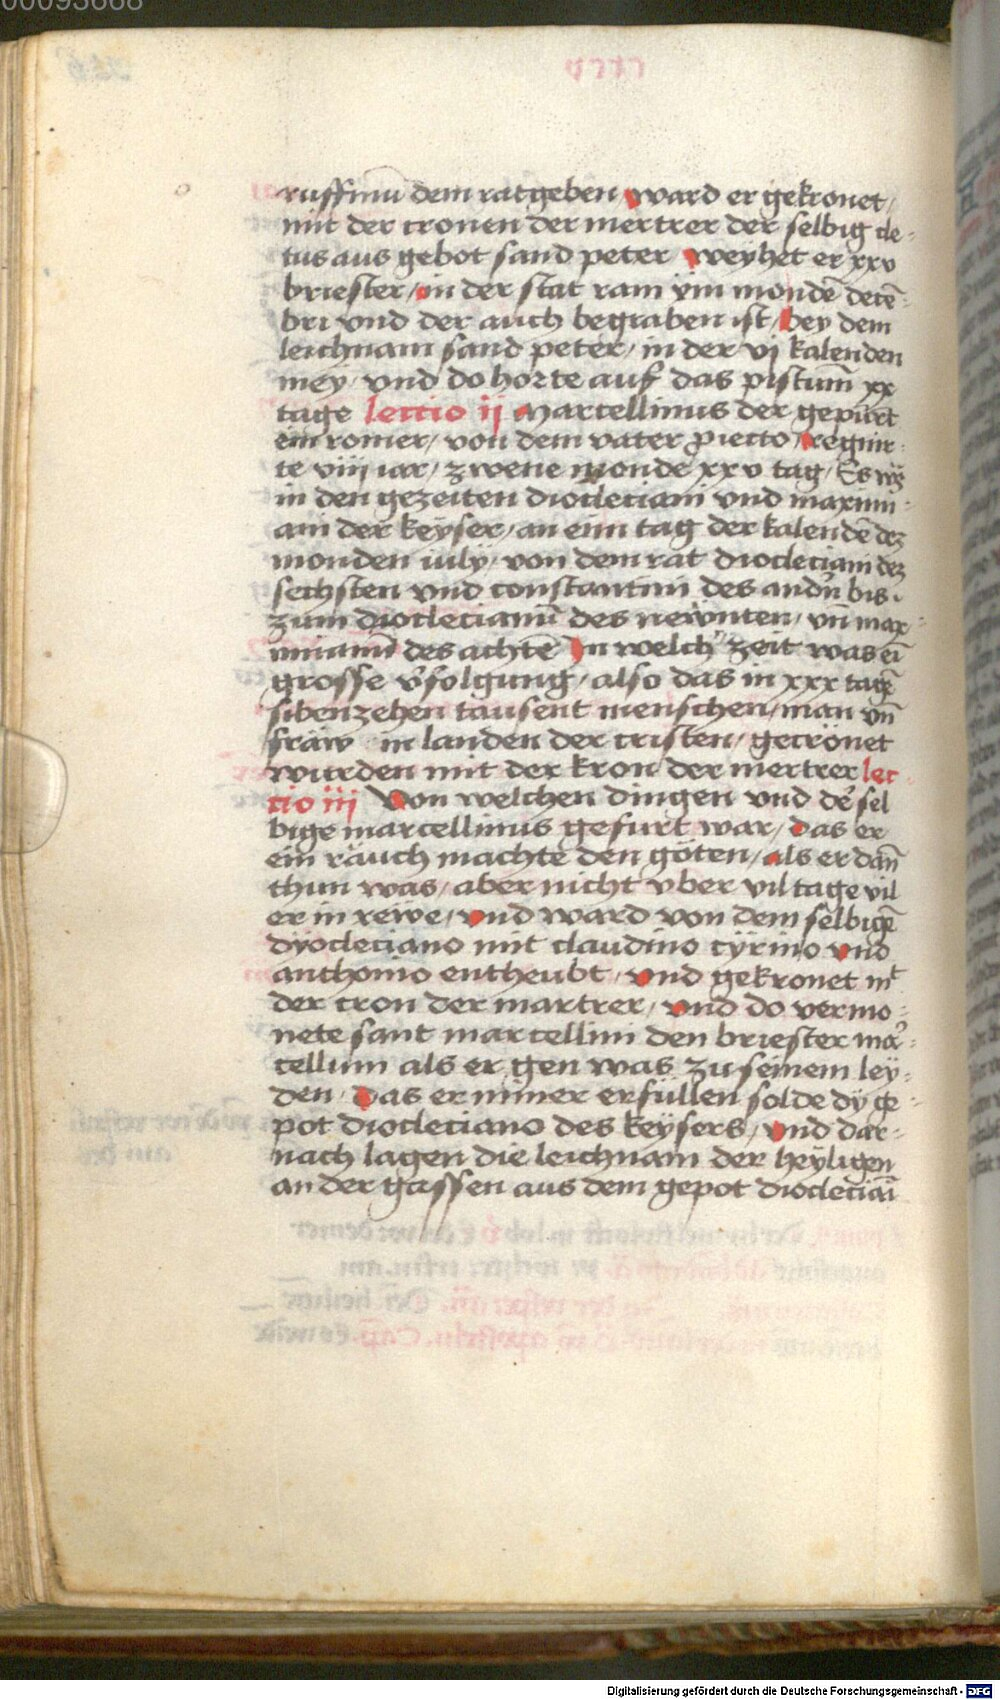 00093668
ruffinū dem ratgeben, ward er gekronet,
mit der cronen der mertrer der selbig cle-
tus aus gebot sand peter weyhet er xxv
briester, in der stat ram ym mondē decē-
bri vnd der auch begraben ist, bey dem
leichnam sand peter, in der vj kalenden
mey, vnd do horte auf das pistum̄ xx
tage lectio ij Marcellinus der gepurt
ein romer, von dem vater proiecto, regnir-
te viiij iar, zwene monde xxv tag, Es wz
in den gezeiten diocleciani vnd maximi-
ani der keyser, an eim tag der kalendē dez
monden iuly, von dem rat diocleciani dez
sechsten vnd constantini des andn̄ bis
zum dioclecianū des newnten, vn̄ max-
imianū des achtē In welch' zeit was eī
grosse v'folgung, also das in xxx tagē
sibenzehen tausent menschen, man vn̄
fraw in landen der cristen, gecrönet
wurden mit der kron der mertrer lec-
tio iij Von welchen dingen vnd de' sel
bige marcellinus gefurt war, das er
ein rauch machte den göten, als er dan̄
thun was, aber nicht vber vil tage vil
er in rewe, vnd ward von dem selbigē
dyocleciano mit claudino cyrino vnd
anthonio entheubt, vnd gekronet mt
der cron der martrer, vnd do vermo-
nete sant marcellini den briester mar-
cellum als er gen was zu seinem ley-
den, Das er nimer erfüllen solde dy ge-
pot diocleciano des keysers, vnd dar-
nach lagen die leichnam der heyligen
an der gassen aus dem gepot dioclecianī
Digitalisierung gefördert durch die Deutsche Forschungsgemeinschaft - DFG